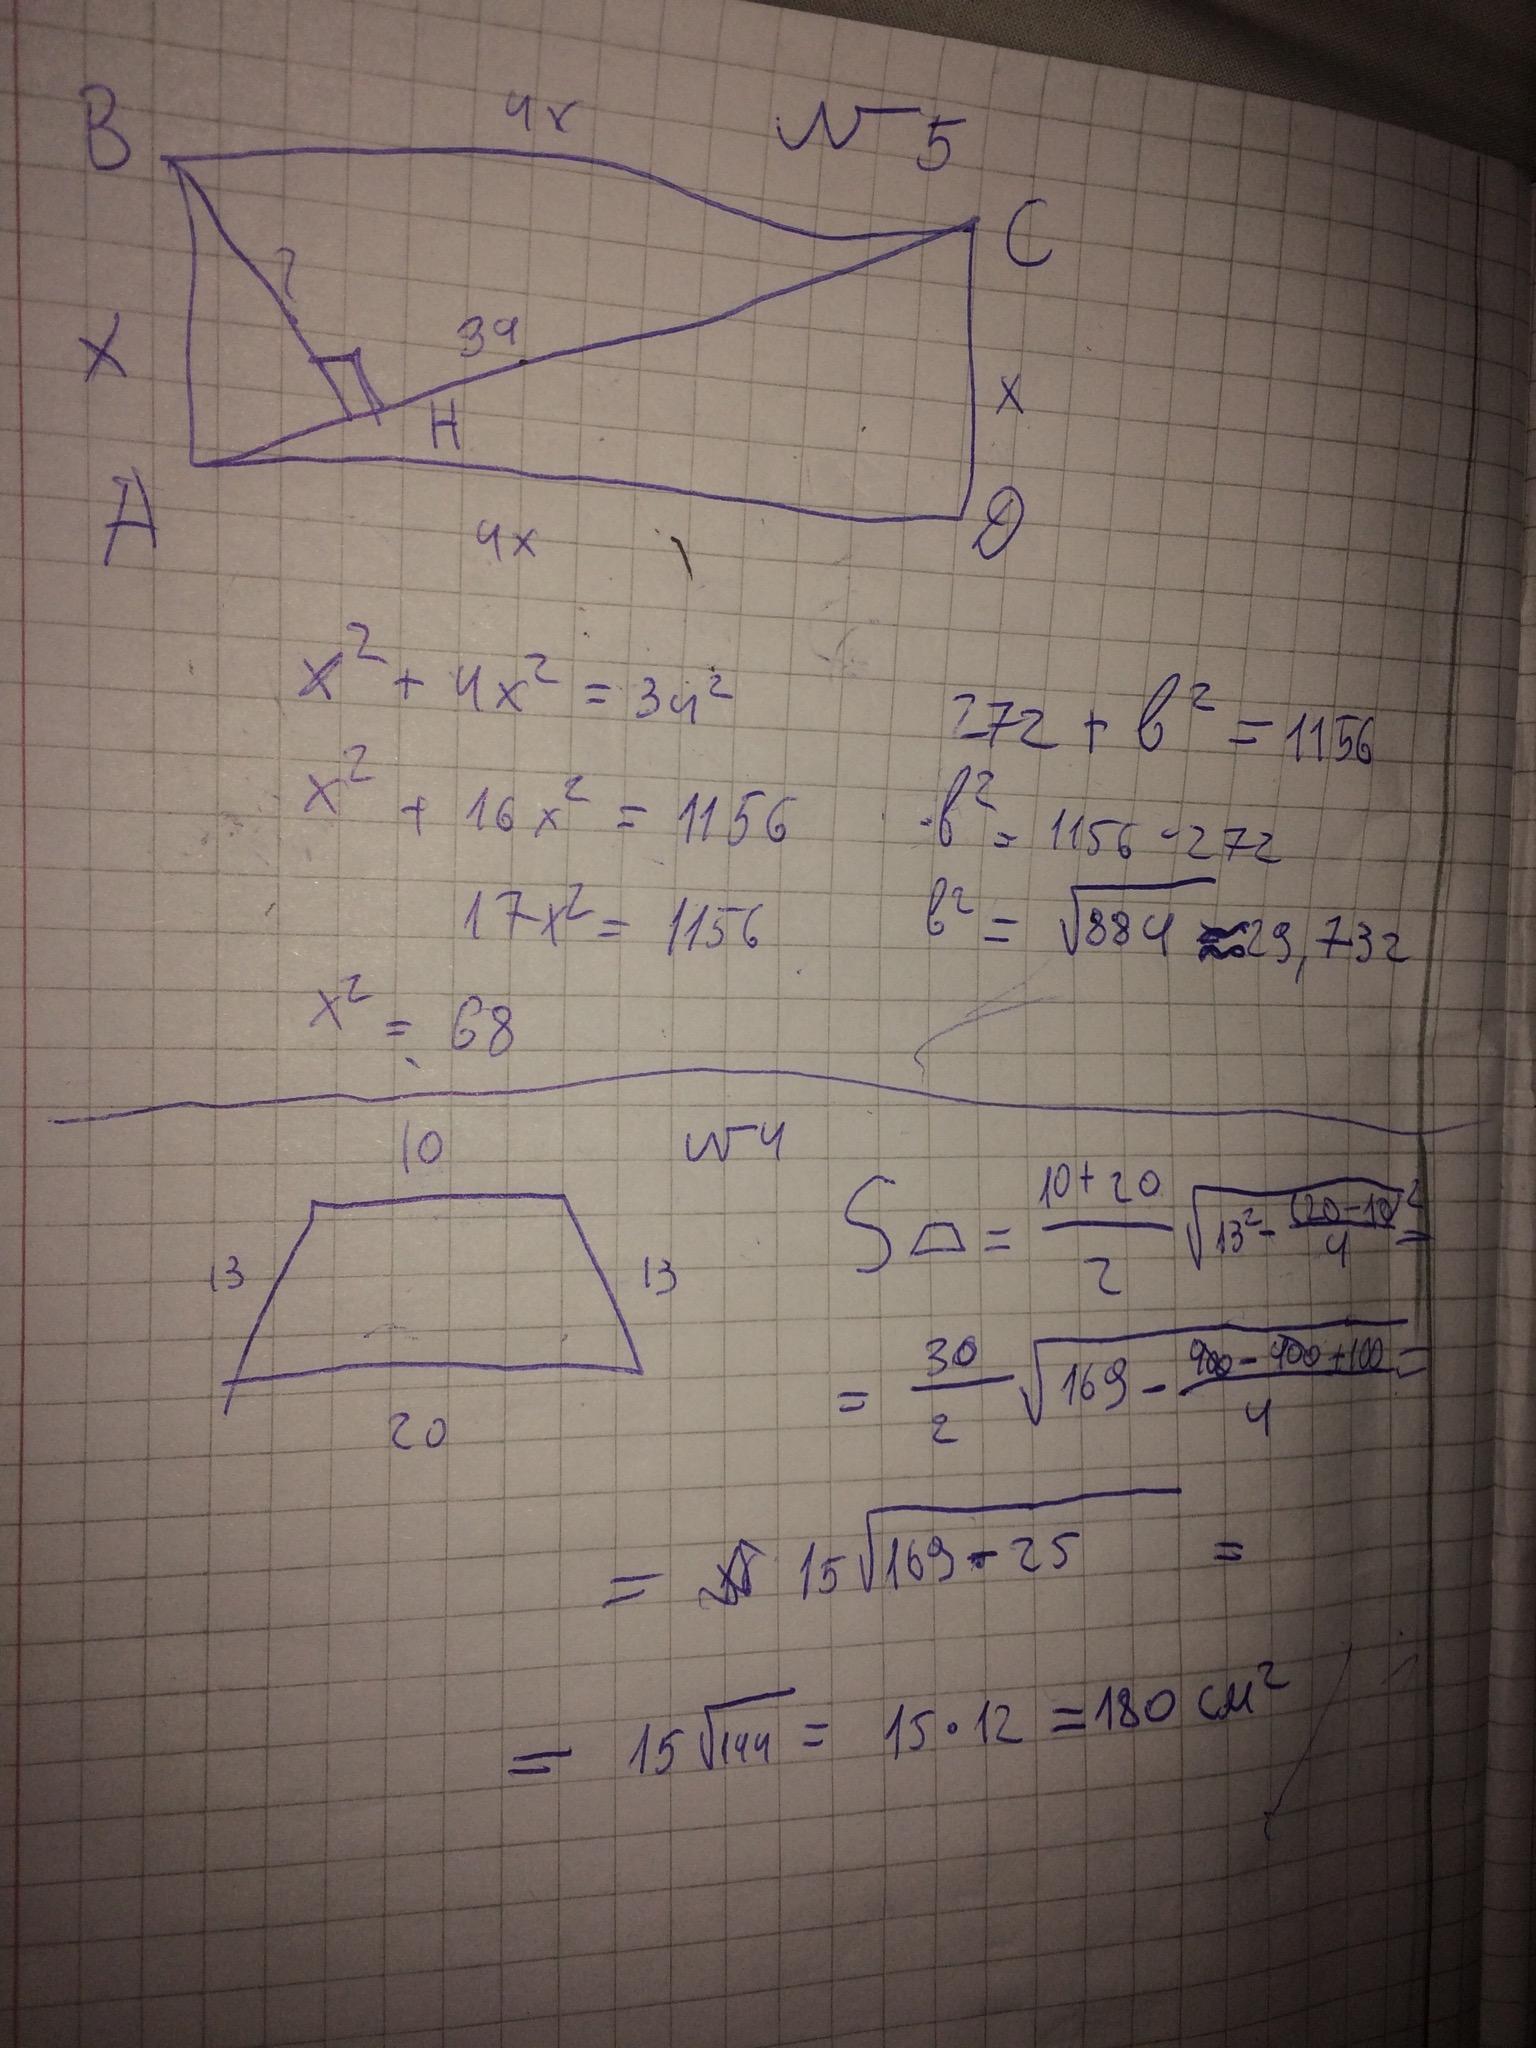 №5
B
4x
C
?
34
x
H
x
A
4x
D
x² + 4x² = 34²
x² + 16x² = 1156
17x² = 1156
x² = 68
272 + b² = 1156
b² = 1156 - 272
b² = √884 ≈ 29,732
№4
10
13
13
20
S⏢ = 10+20/2 √13² - (20-10)²/4 =
= 30/2 √169 - 400-400+100/4 =
= 15√169-25 =
= 15√144 = 15·12 = 180 см²